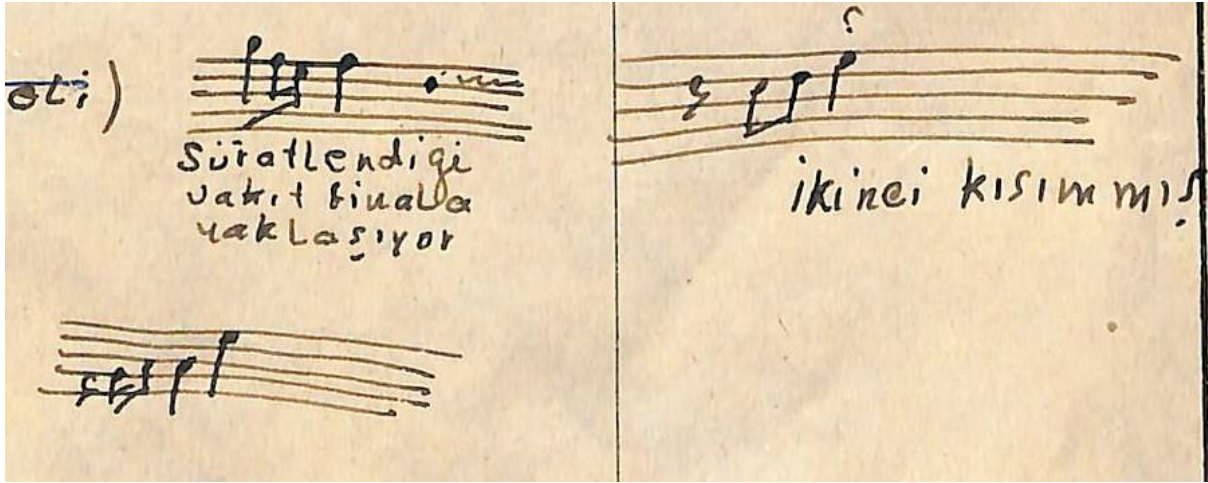 eti)
Süratlendigi
vakıt binala
yaklaşıyor
ikinci kısımmış